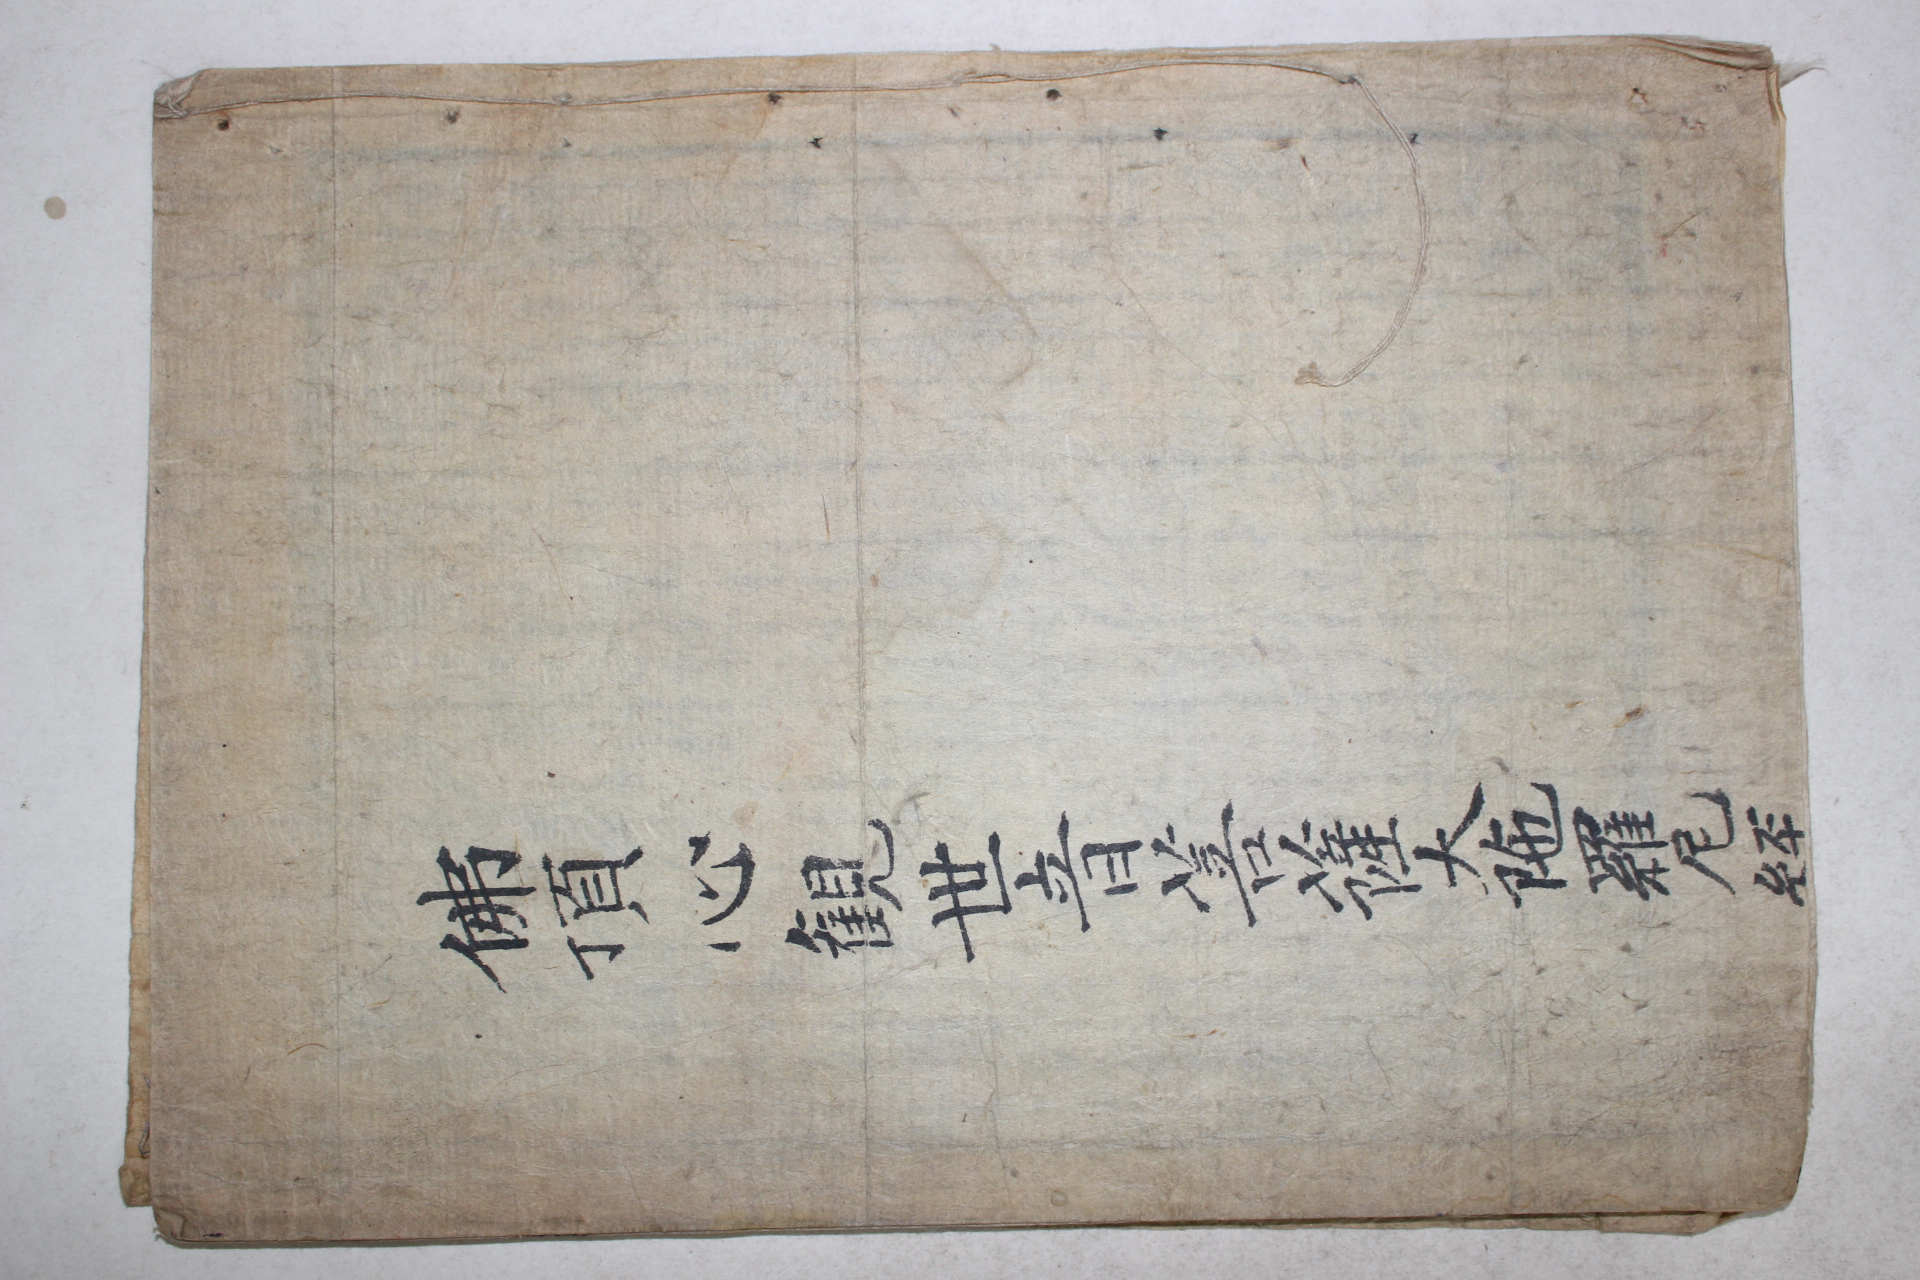 佛頂心観世音菩薩大陁羅尼経